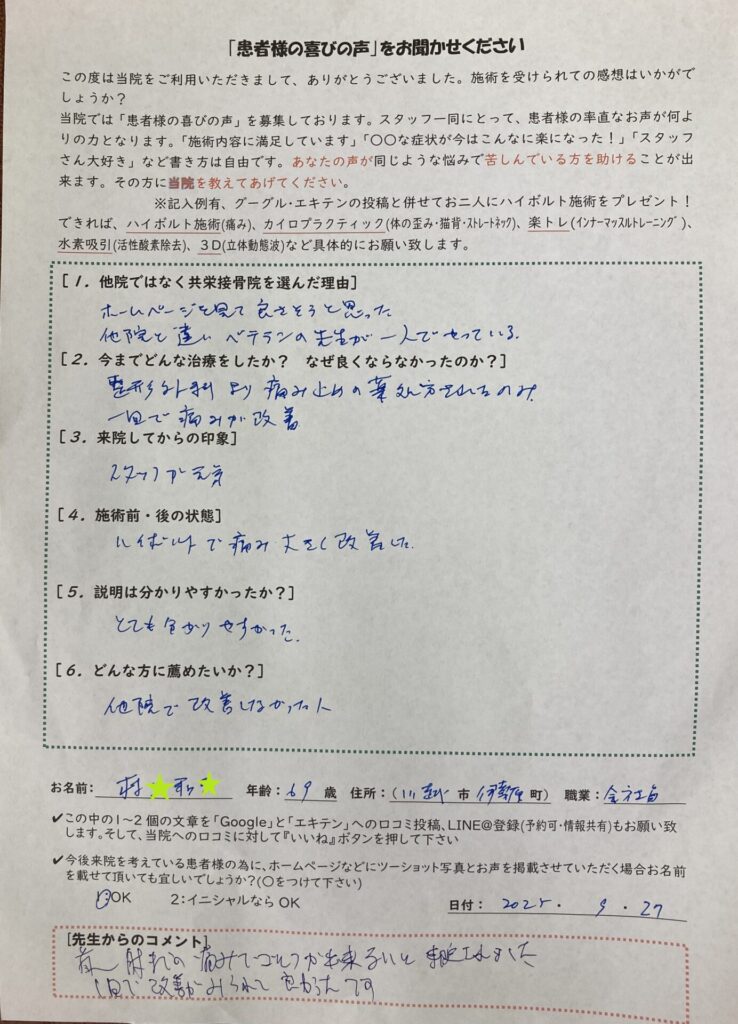 「患者様の喜びの声」をお聞かせください
この度は当院をご利用いただきまして、ありがとうございました。施術を受けられての感想はいかがで
しょうか？
当院では「患者様の喜びの声」を募集しております。スタッフ一同にとって、患者様の率直なお声が何よ
りの力となります。「施術内容に満足しています」「〇〇な症状が今はこんなに楽になった！」「スタッフ
さん大好き」など書き方は自由です。あなたの声が同じような悩みで苦しんでいる方を助けることが出
来ます。その方に当院を教えてあげてください。
※記入例有、グーグル・エキテンの投稿と併せてお二人にハイボルト施術をプレゼント！
できれば、ハイボルト施術(痛み)、カイロプラクティック(体の歪み・猫背・ストレートネック)、楽トレ(インナーマッスルトレーニング)、
水素吸引(活性酸素除去)、3D(立体動態波)など具体的にお願い致します。
[1．他院ではなく共栄接骨院を選んだ理由]
ホームページを見て良さそうと思った
他院と違い ベテランの先生が一人でやっている.
[2．今までどんな治療をしたか？ なぜ良くならなかったのか？]
整形外科より 痛み止めの薬処方されるのみ
一回で痛みが改善
[3．来院してからの印象]
スタッフが元気
[4．施術前・後の状態]
ハイボルトで痛み大きく改善した.
[5．説明は分かりやすかったか？]
とても分かりやすかった.
[6．どんな方に薦めたいか？]
他院で改善しなかった人
お名前： 村 年齢：69 歳 住所：(川越 市 伊勢原 町) 職業：会社員
✔この中の1～2個の文章を「Google」と「エキテン」への口コミ投稿、LINE@登録(予約可・情報共有)もお願い致
します。そして、当院への口コミに対して『いいね』ボタンを押して下さい
✔今後来院を考えている患者様の為に、ホームページなどにツーショット写真とお声を掲載させていただく場合お名前
を載せて頂いても宜しいでしょうか？(〇をつけて下さい)
OK 2：イニシャルならOK
日付： 2025. 9. 27
[先生からのコメント]
痛みでゴルフが出来ないと来院されました
1回で改善がみられて良かったです